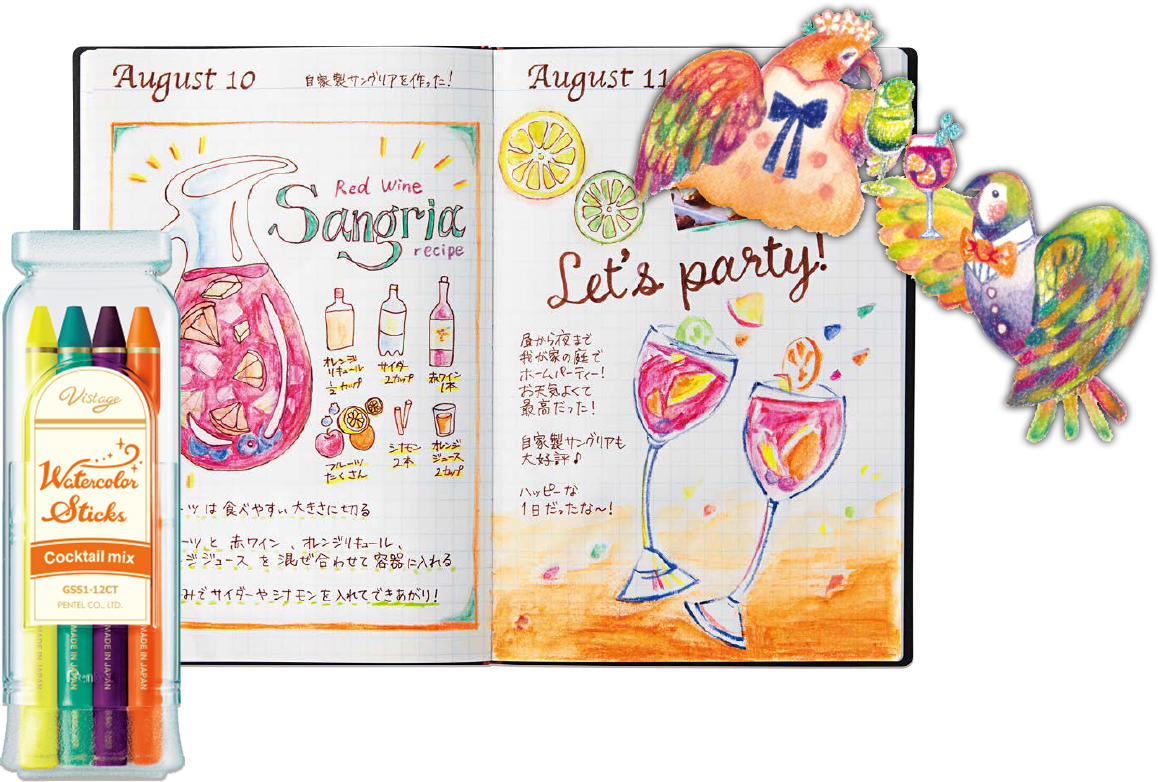 August 10
自家製サングリアを作った!
Red Wine
Sangria
recipe
オレンジ
リキュール
1/2カップ
サイダー
2カップ
赤ワイン
1本
フルーツ
たくさん
シナモン
2本
オレンジ
ジュース
2カップ
ーツは食べやすい大きさに切る
ーツと赤ワイン、オレンジリキュール、
ジジュースを混ぜ合わせて容器に入れる
みでサイダーやシナモンを入れてできあがり!
August 11
Let's party!
昼から夜まで
我が家の庭で
ホームパーティー!
お天気よくて
最高だった!
自家製サングリアも
大好評♪
ハッピーな
1日だったな〜!
Vistage
Watercolor
Sticks
Cocktail mix
GSS1-12CT
PENTEL CO., LTD.
MADE IN JAPAN
MADE IN JAPAN
MADE IN JAPAN
MADE IN JAPAN